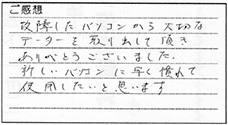 ご感想
故障したパソコンから大切な
データーを取り出して頂き
ありがとうございました。
新しいパソコンに早く慣れて
使用したいと思います